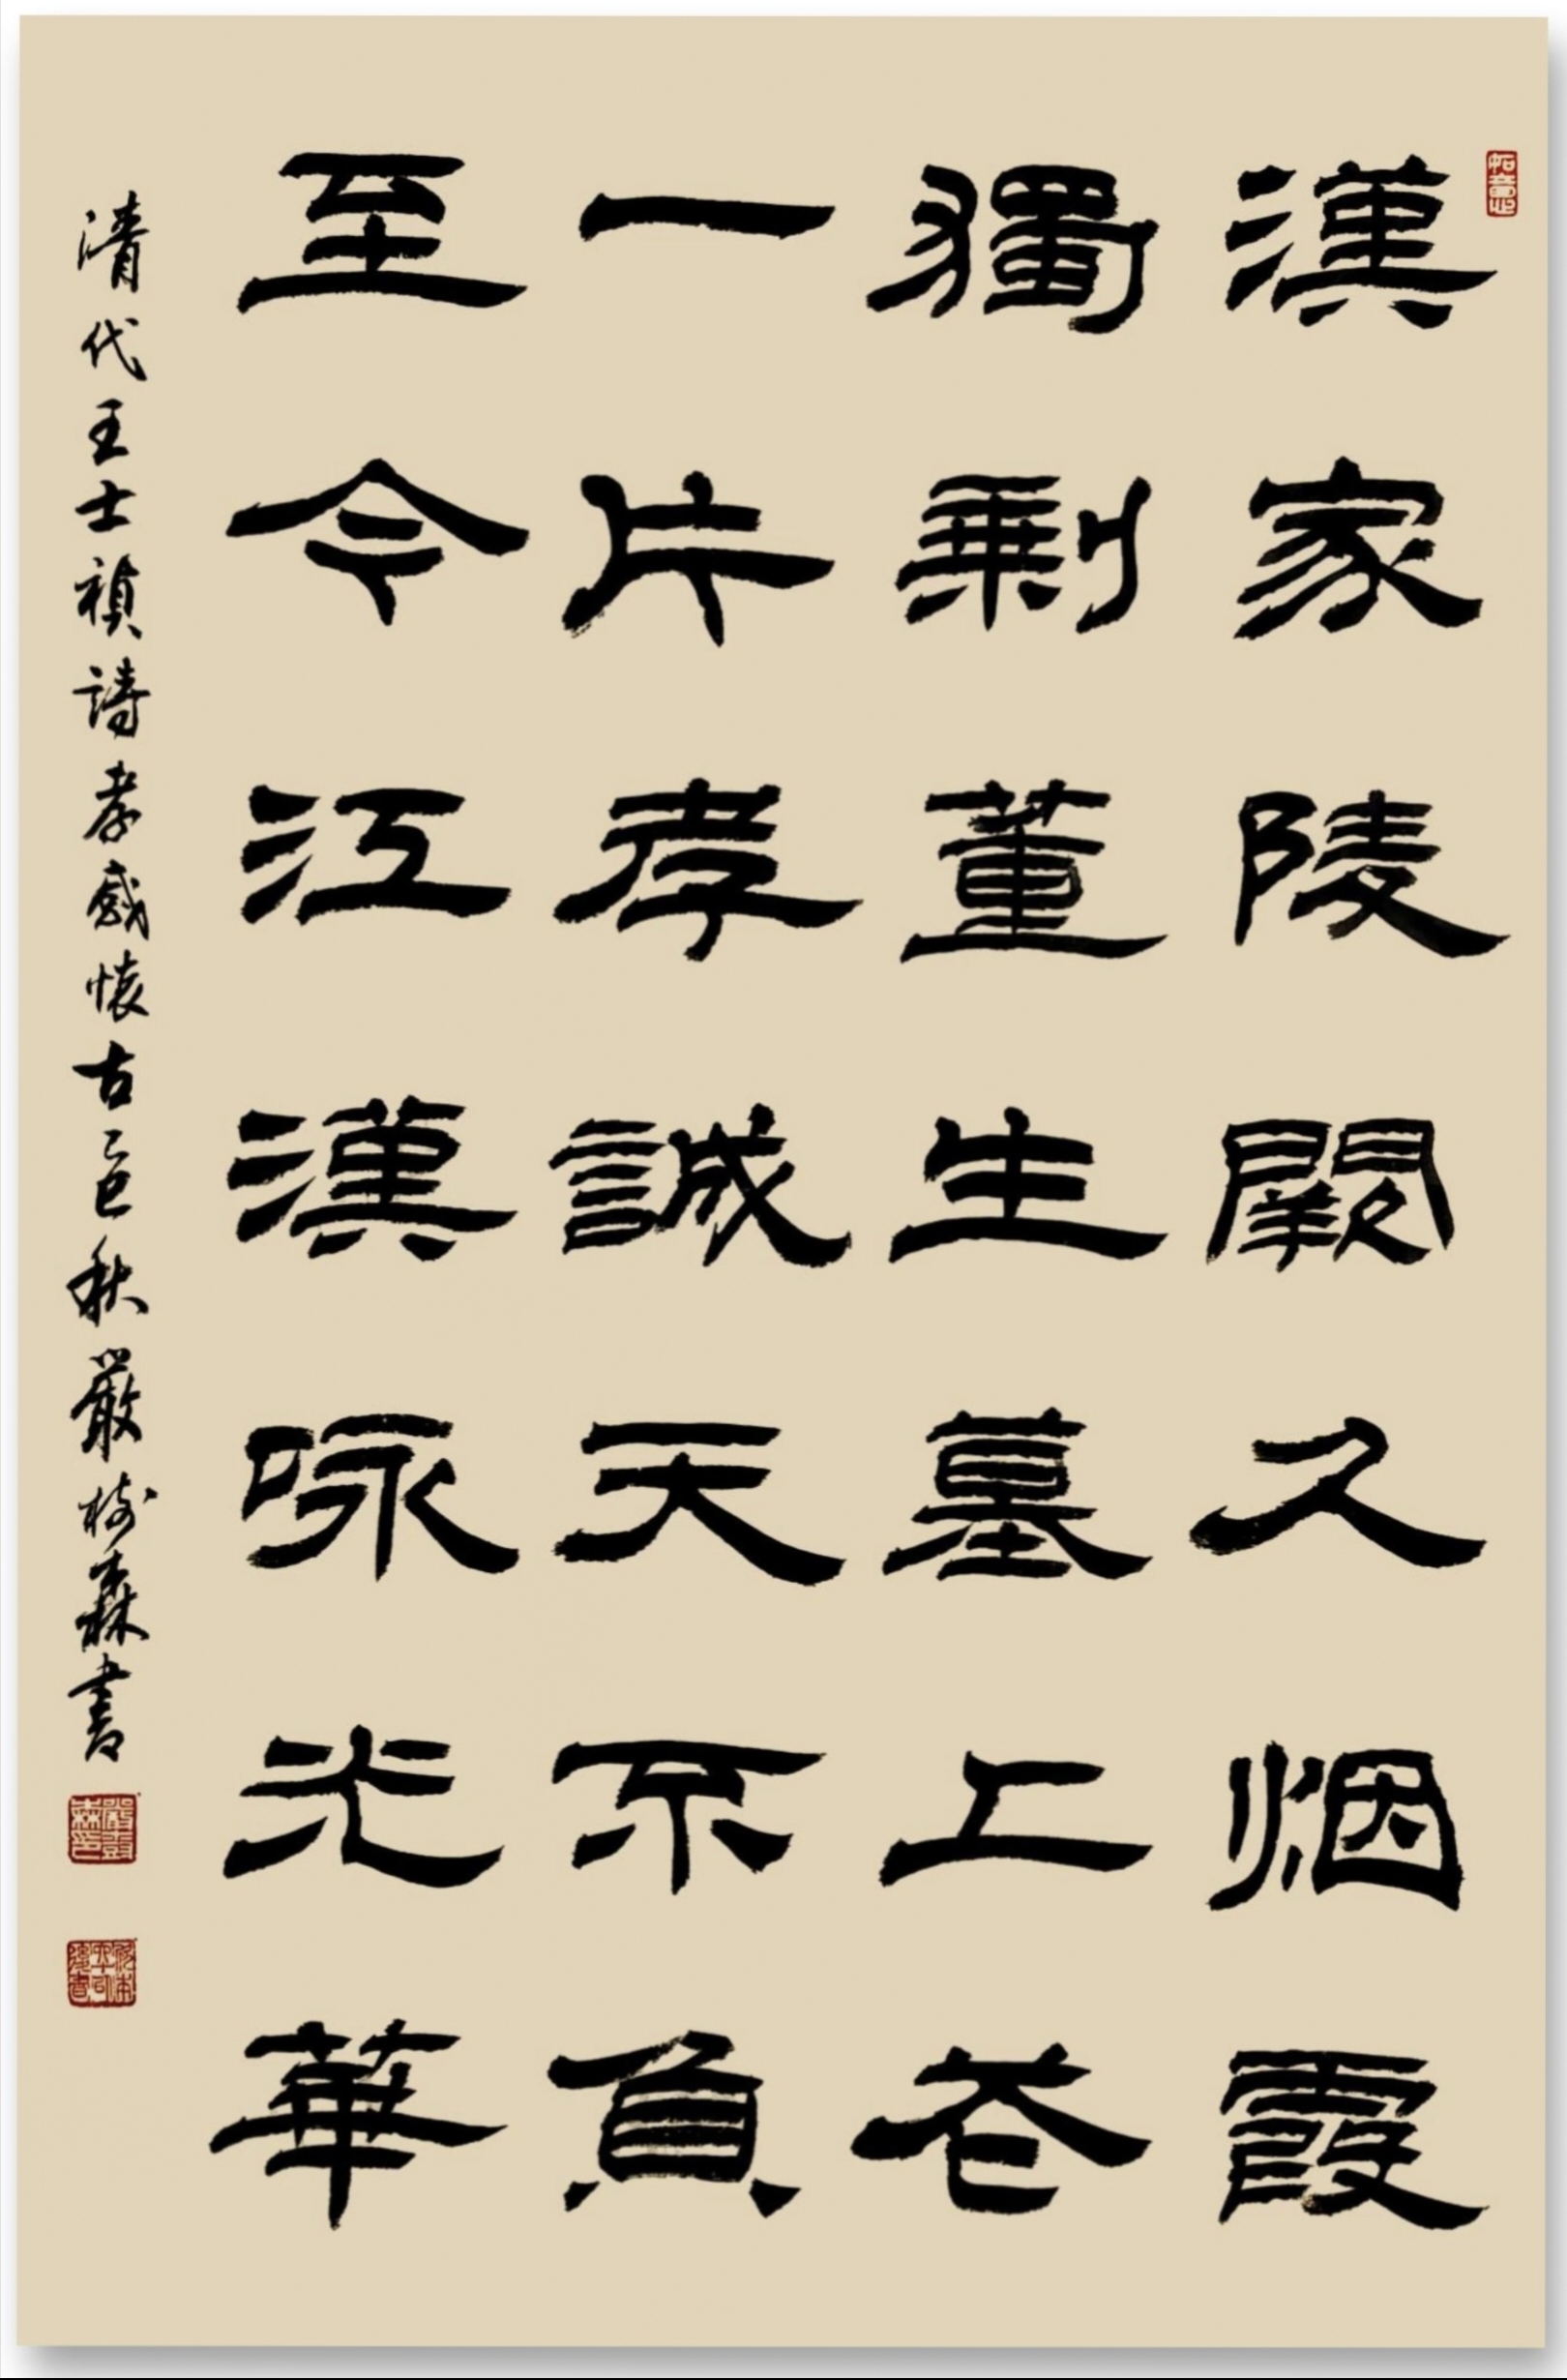 漢家陵闕久烟霞
獨剩董生墓上花
一片孝誠天不負
至今江漢咏光華
清代王士禎詩孝感懷古乙巳秋嚴樹森書